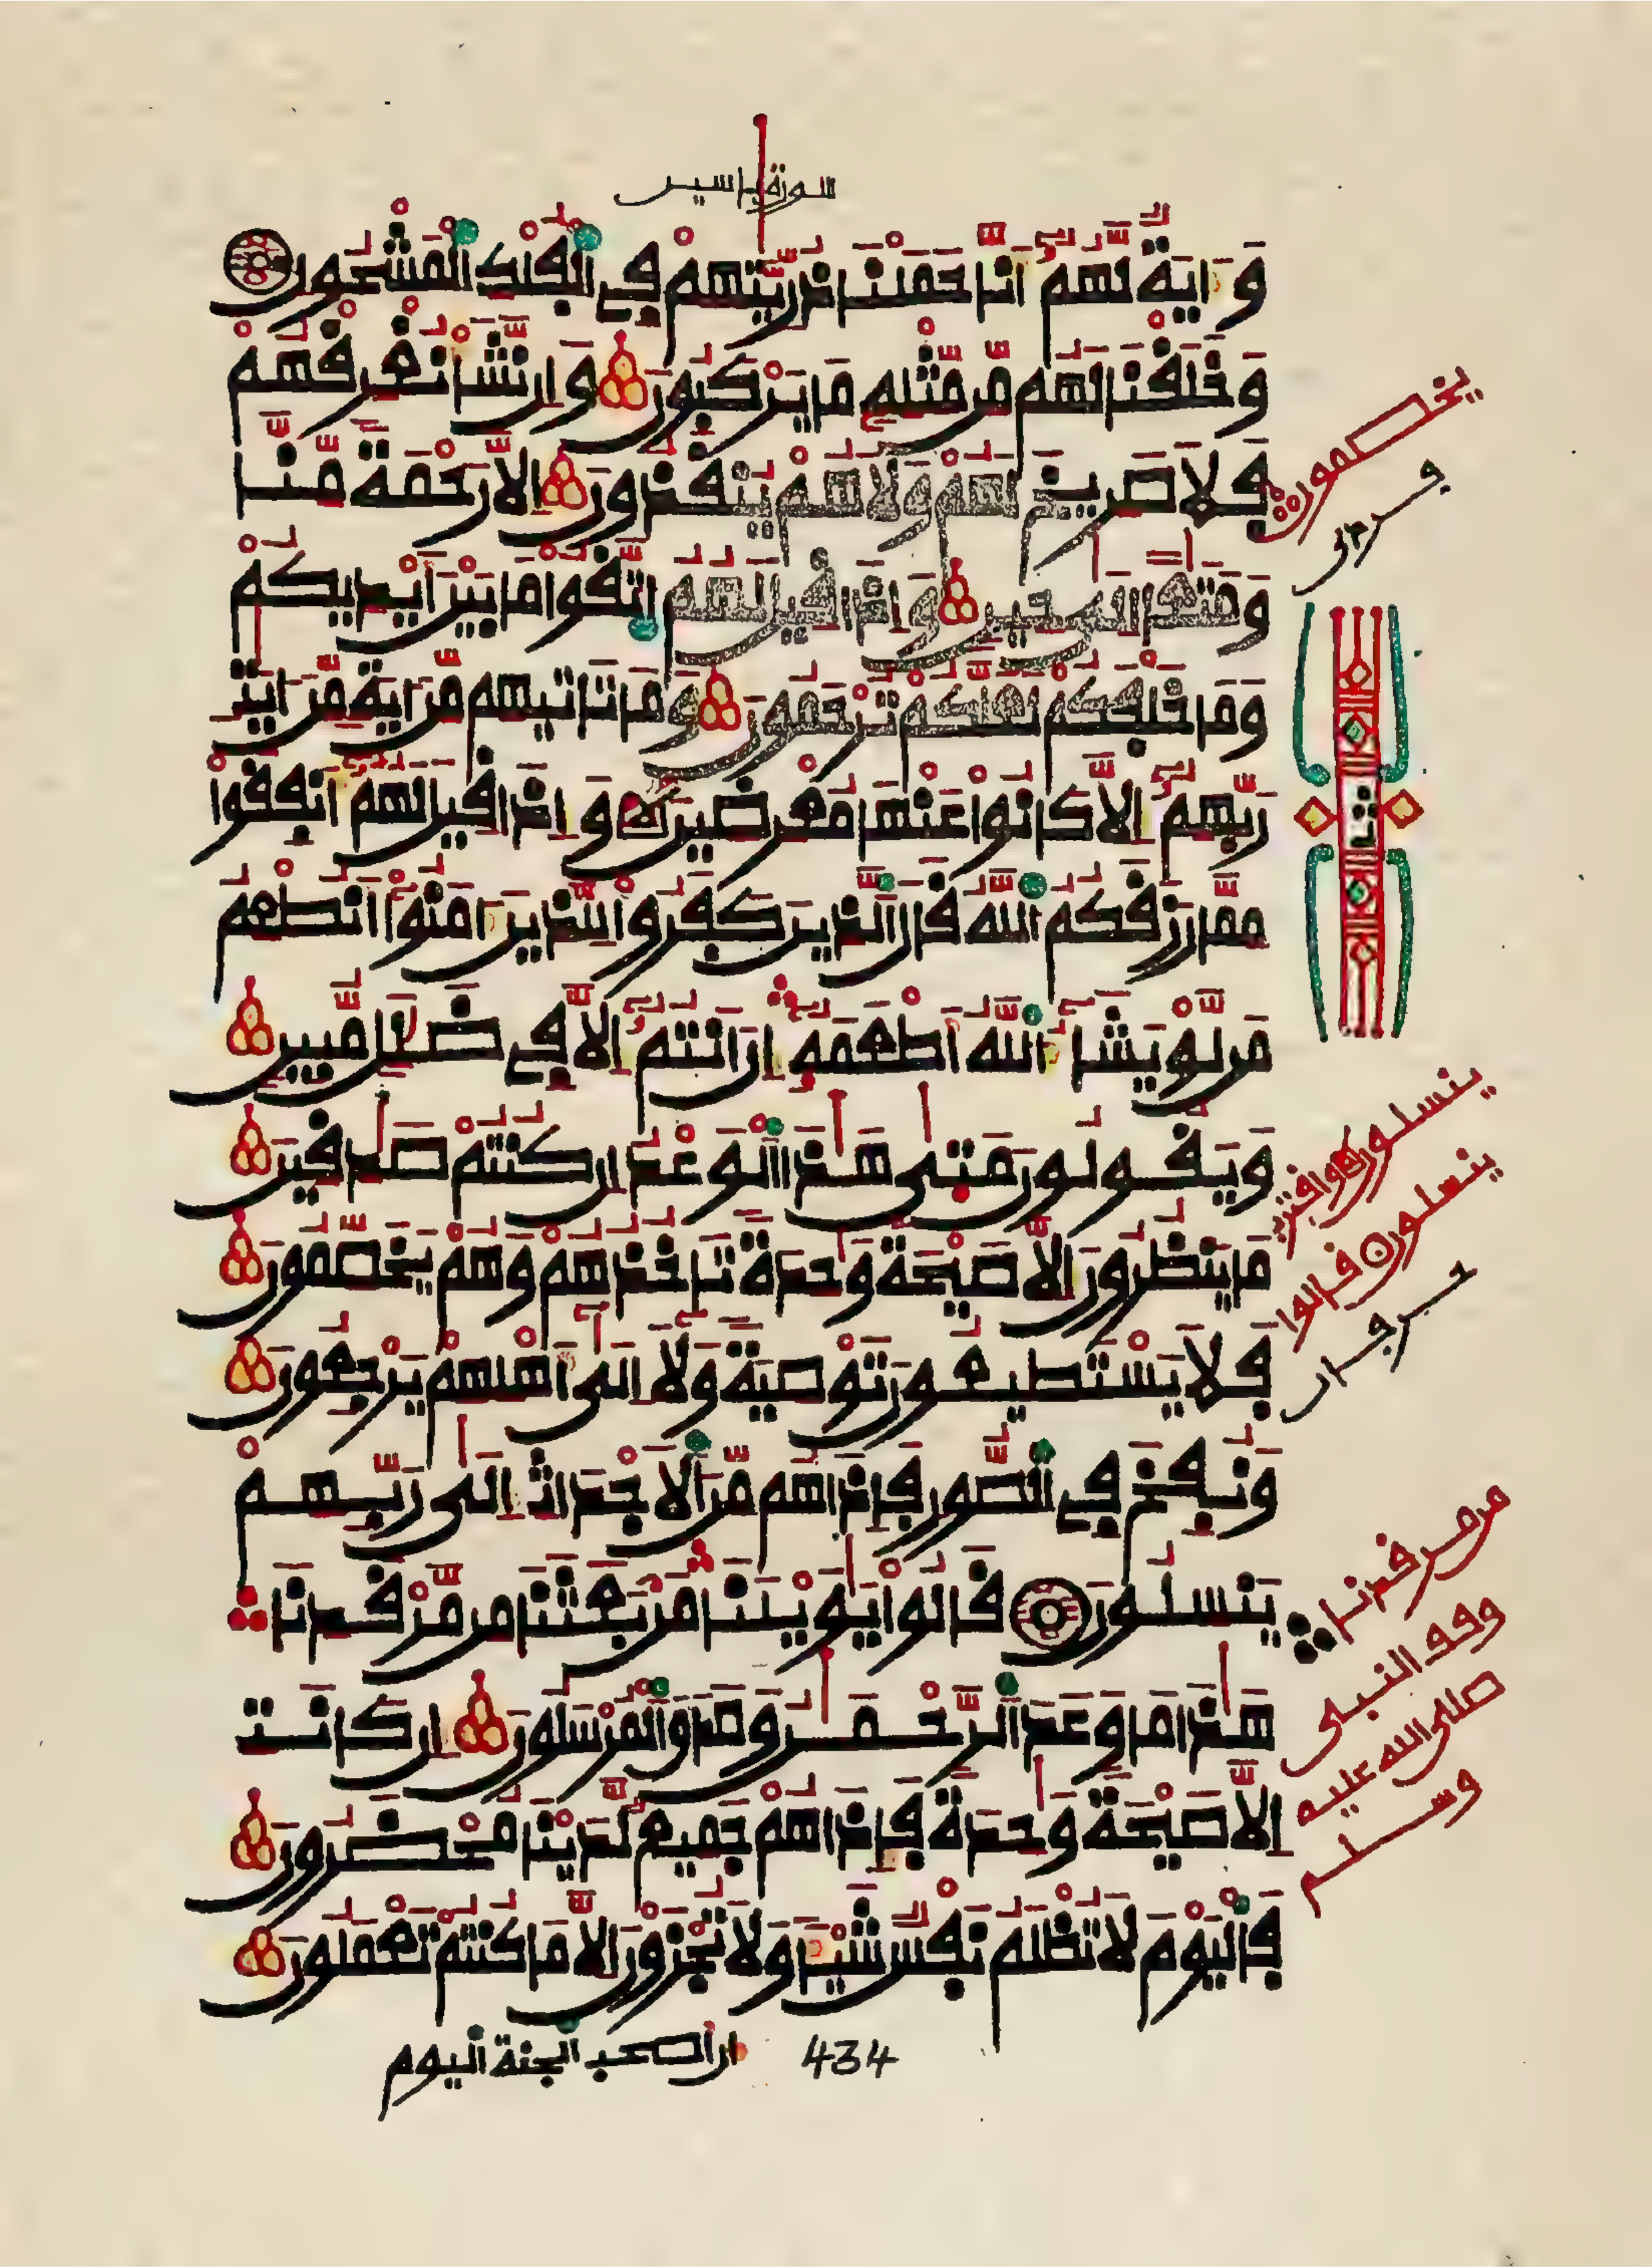 سورة ياسين
وَءَايَةٌ لَّهُمُ أَنَّا حَمَلْنَا ذُرِّيَّتِهِمْ فِي الْفُلْكِ الْمَشْحُونِ
وَخَلَقْنَا لَهُم مِّن مِّثْلِهِ مَا يَرْكَبُونَ وَإِن نَّشَأْ نُغْرِقْهُمْ
فَلَا صَرِيخَ لَهُمْ وَلَا هُمْ يُنقَذُونَ إِلَّا رَحْمَةً مِّنَّا
وَمَتَٰعًا إِلَىٰ حِينٍ وَإِذَا قِيلَ لَهُمُ اتَّقُوا مَا بَيْنَ أَيْدِيكُمْ
وَمَا خَلْفَكُمْ لَعَلَّكُمْ تُرْحَمُونَ وَمَا تَاتِيهِم مِّنَ ايَةٍ مِّنَ ايَٰتِ
رَبِّهِمُ إِلَّا كَانُوا عَنْهَا مُعْرِضِينَ وَإِذَا قِيلَ لَهُمُ أَنفِقُوا
مِمَّا رَزَقَكُمُ اللَّهُ قَالَ الَّذِينَ كَفَرُوا لِلَّذِينَ ءَامَنُوا أَنُطْعِمُ
مَن لَّوْ يَشَاءُ اللَّهُ أَطْعَمَهُ إِنَ انتُمُ إِلَّا فِي ضَلَٰلٍ مُّبِينٍ
وَيَقُولُونَ مَتَىٰ هَٰذَا الْوَعْدُ إِن كُنتُمْ صَٰدِقِينَ
مَا يَنظُرُونَ إِلَّا صَيْحَةً وَٰحِدَةً تَاخُذُهُمْ وَهُمْ يَخَصِّمُونَ
فَلَا يَسْتَطِيعُونَ تَوْصِيَةً وَلَا إِلَىٰ أَهْلِهِمْ يَرْجِعُونَ
وَنُفِخَ فِي الصُّورِ فَإِذَا هُم مِّنَ الَاجْدَاثِ إِلَىٰ رَبِّهِمْ
يَنسِلُونَ قَالُوا يَٰوَيْلَنَا مَن بَعَثَنَا مِن مَّرْقَدِنَا
هَٰذَا مَا وَعَدَ الرَّحْمَٰنُ وَصَدَقَ الْمُرْسَلُونَ إِن كَانَتِ
إِلَّا صَيْحَةً وَٰحِدَةً فَإِذَا هُمْ جَمِيعٌ لَّدَيْنَا مُحْضَرُونَ
فَالْيَوْمَ لَا تُظْلَمُ نَفْسٌ شَيْئًا وَلَا تُجْزَوْنَ إِلَّا مَا كُنتُمْ تَعْمَلُونَ
ان أصحب الجنة اليوم
434
يخصمون
ثمن
ينسلون
ينسلون قالوا
مرمرقدنا
وقف النبي
صلى الله عليه
وسلم